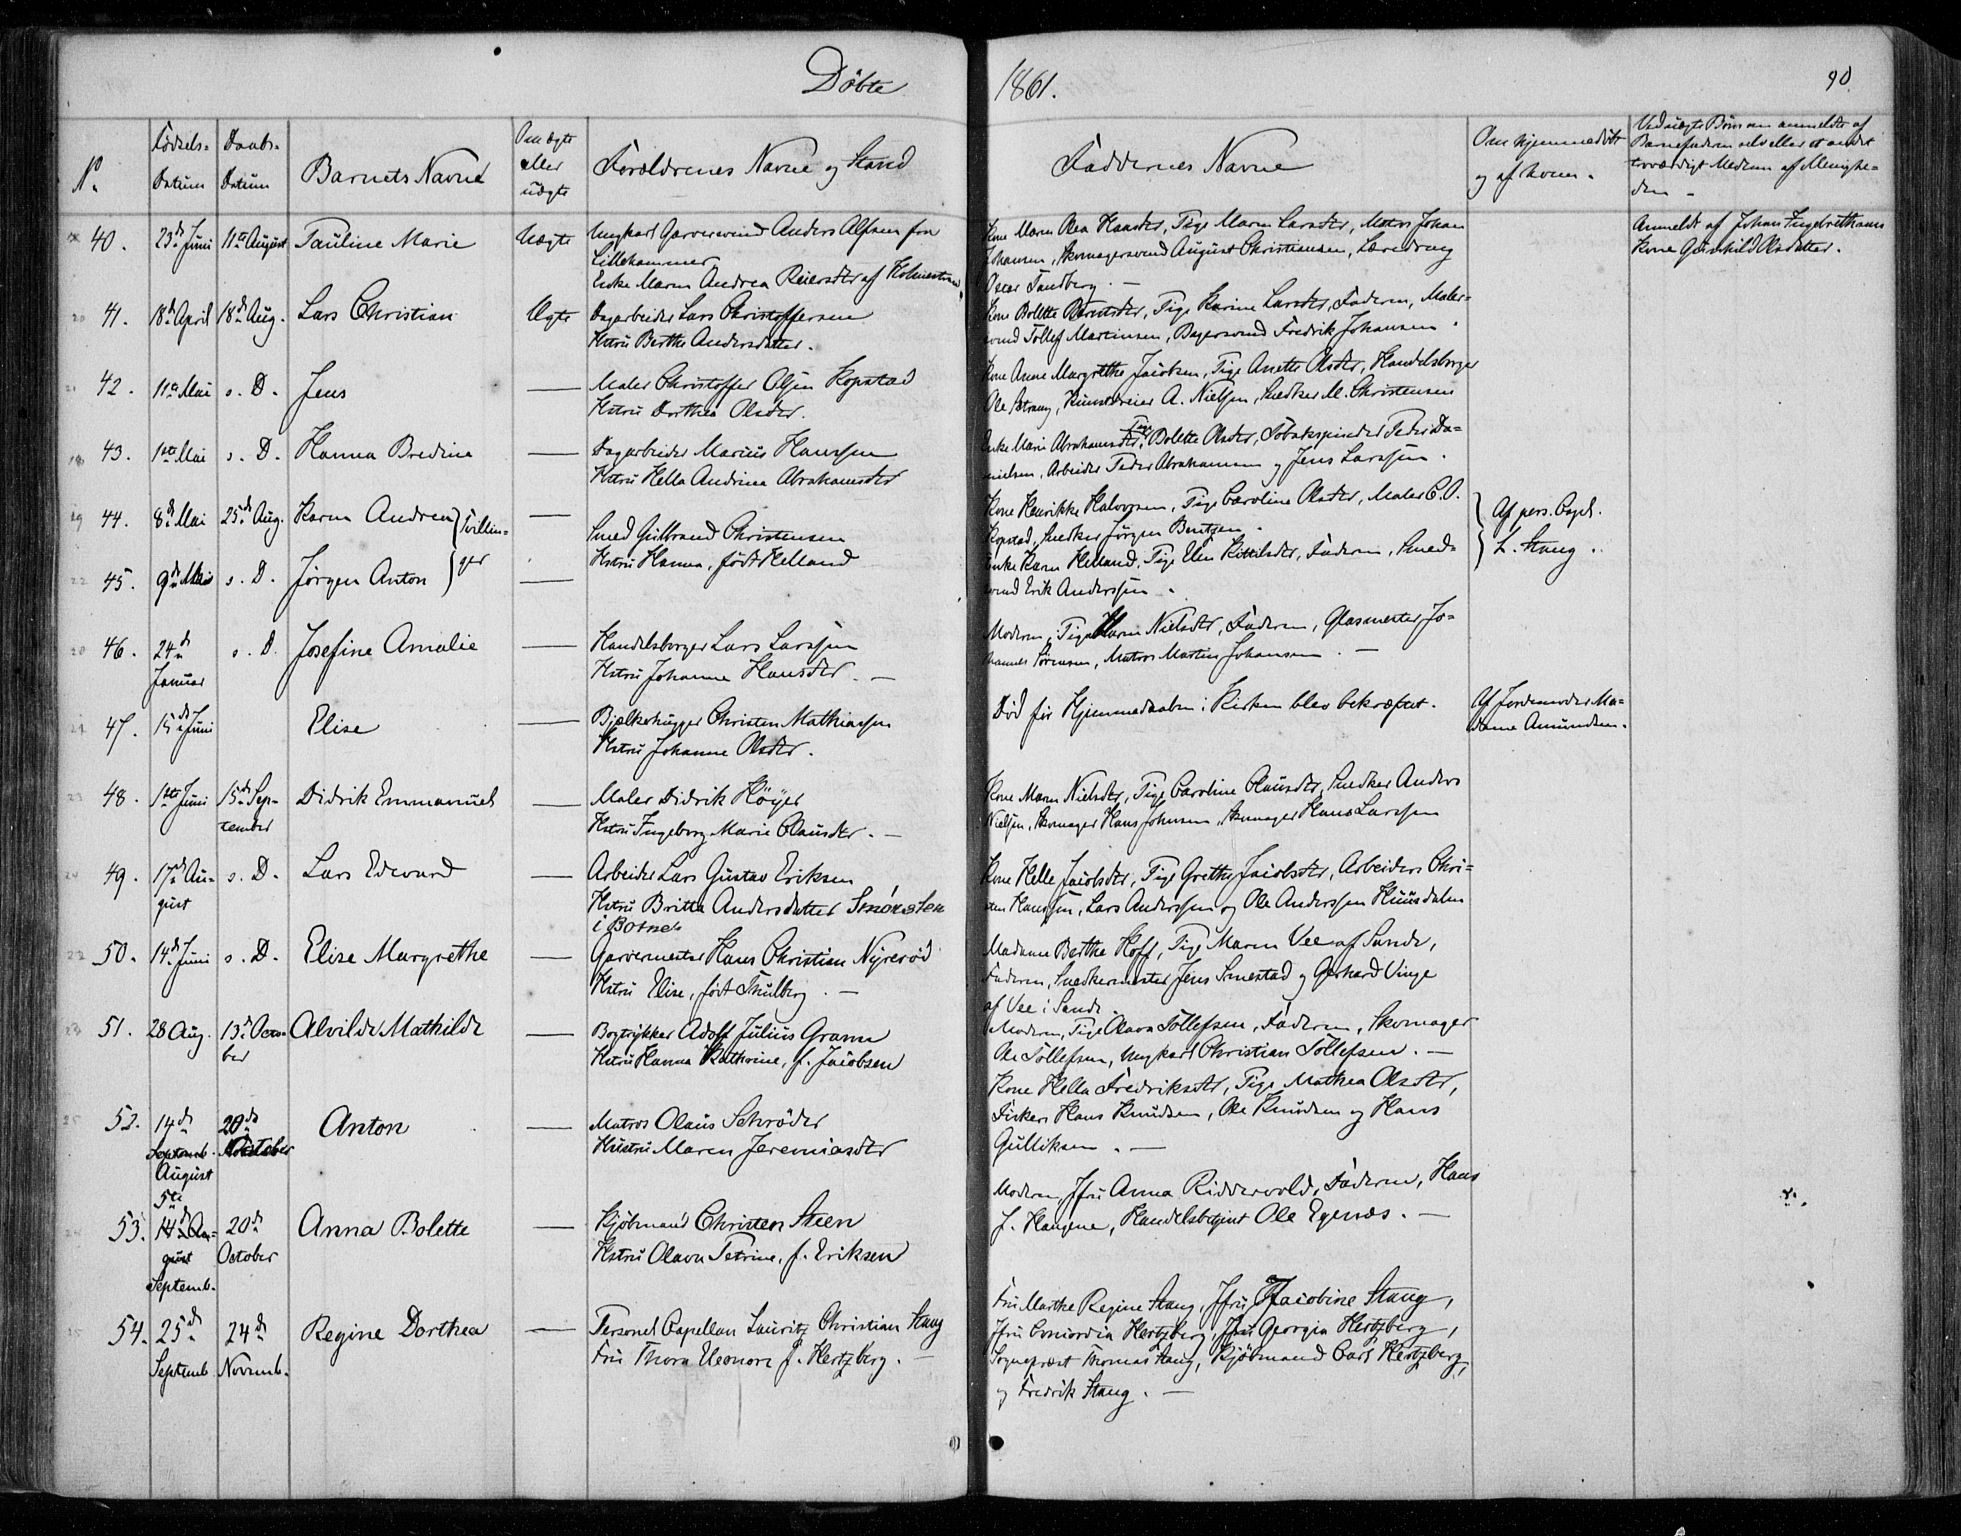 Döbte
1861.
90
No.
Födsels-
Datum
Daabs-
Datum
Barnets Navne
Om ægte
eller
uægte
Forældrenes Navne og Stand
Faddernes Navne
Om hjemmedöbt
og af hvem.
Ved uægte Børn om anmeldt af
Barnefaderen selv eller et andet
troværdigt Medlem af Menighe-
den -
40. 23de Juni 11te August Pauline Marie Uægte Ungkarl Garversvend Anders Alfsen fra
Lillehammer
Enke Maren Andrea Reiersdtr af Holmestrand.
Kone Maren Olea Hansdtr, Pige Maren Larsdtr, Matros Johan
Johansen, Skomagersvend August Christiansen, Læredreng
Oscar Sandberg. -
Anmeldt af Johan Ingebrethsens
Kone Gunhild Olsdatter.
41. 18de April 18de Aug. Lars Christian Ægte Dagarbeider Lars Christoffersen
Hstru Berthe Andersdatter.
Kone Bolette Berntsdtr, Pige Karine Larsdtr, Faderen, Maler-
svend Tollef Martinsen, Bagersvend Fredrik Johansen.
42. 11te Mai s. D. Jens — Maler Christoffer Olsen Kopstad
Hstru Dorthea Olsdtr.
Kone Anne Margrethe Jacobsen, Pige Anette Olsdtr, Handelsborger
Ole Strang, Kunstdreier A. Nielsen, Snedker M. Christensen
43. 1ste Mai s. D. Hanna Bredine — Dagarbeider Marius Hanssen
Hstru Hella Andrine Abrahamsdtr
Enke Marie Abrahamsdtr, Pige Bolette Olsdtr, Tobakspinder Peder Da-
nielsen, Arbeider Peder Abrahamsen og Jens Larssen.
44. 8de Mai 25de Aug. Karen Andrea } Tvillin- —
Smed Gulbrand Christensen
Hstru Hanna, født Helland
Kone Henrikke Halvorsen, Pige Caroline Olsdtr, Maler C. O.
Kopstad, Snedker Jørgen Bentzen.
Af pers. Capel.
L. Stang.
45. 9de Mai s. D. Jörgen Anton } ger —
Enke Karen Helland, Pige Elen Kittilsdtr, Faderen, Smed-
svend Erik Anderssen.
46. 24de
Januar
s. D. Josefine Amalie — Handelsborger Lars Larssen
Hstru Johanne Hansdtr. -
Moderen, Pige Karen Nielsdtr, Faderen, Glasmester Jo-
hannes Sørensen, Matros Martin Johansen. -
47. 15de Juni Elise — Bjælkehugger Christen Mathiassen
Hstru Johanne Olsdtr.
Död för Hjemmedaaben i Kirken blev bekræftet.
Af Jordemoder Ma-
dame Amundsen.
48. 1ste Juni 15de Sep-
tember
Didrik Emmanuel — Maler Didrik Höyer
Hstru Ingeborg Marie Clausdtr. -
Kone Maren Nielsdtr, Pige Caroline Clausdtr, Snedker Anders
Nielsen, Skomager Hans Johnsen, Skomager Hans Larssen
49. 17de Au-
gust
s. D. Lars Edevard — Arbeider Lars Gustav Eriksen
Hstru Britta Andersdatter Smörsten
i Botne.
Kone Helle Jacobsdtr, Pige Grethe Jacobsdtr, Arbeiderne Chri-
sten Hanssen, Lars Anderssen og Ole Anderssen Huusdalen
50. 14de Juni s. D. Elise Margrethe — Garvermester Hans Christian Nyeröd
Hstru Elise, født Thulberg. -
Madame Berthe Hoff, Pige Maren Vee af Sande,
Faderen, Snedkermester Jens Smestad og Gerhard Vinge
af Vee i Sande.
51. 28 Aug. 13de Octo-
ber
Alvilde Mathilde — Bogtrykker Adolf Julius Gram
Hstru Hanna Kathrine, f. Jacobsen
Moderen, Pige Olava Tollefsen, Faderen, Skomager
Ole Tollefsen, Ungkarl Christian Tollefsen. -
52. 14de
Septemb.
August
20de
October
Anton — Matros Olaus Schröder
Hustru Maren Jeremiasdtr
Kone Hella Fredriksdtr, Pige Mathea Olsdtr,
Fisker Hans Knudsen, Ole Knudsen og Hans
Gulliksen. -
53. 5te
14de Au-
gust
Septemb.
20de
October
Anna Bolette — Kjöbmand Christen Steen
Hstru Olava Petrine, f. Eriksen
Moderen, Jfru Anna Riddervold, Faderen, Hans
J. Haugene, Handelsbetjent Ole Egenæs. -
54. 25de
Septemb
24de
Novemb.
Regine Dorthea — Personel Capellan Lauritz Christian Stang
Fru Thora Eleonore f. Hertzberg. -
Fru Marthe Regine Stang, Jfru Jacobine Stang,
Jfru Concordia Hertzberg, Jfru Georgia Hertzberg,
Sognepræst Thomas Stang, Kjöbmand Carl Hertzberg,
og Fredrik Stang. -